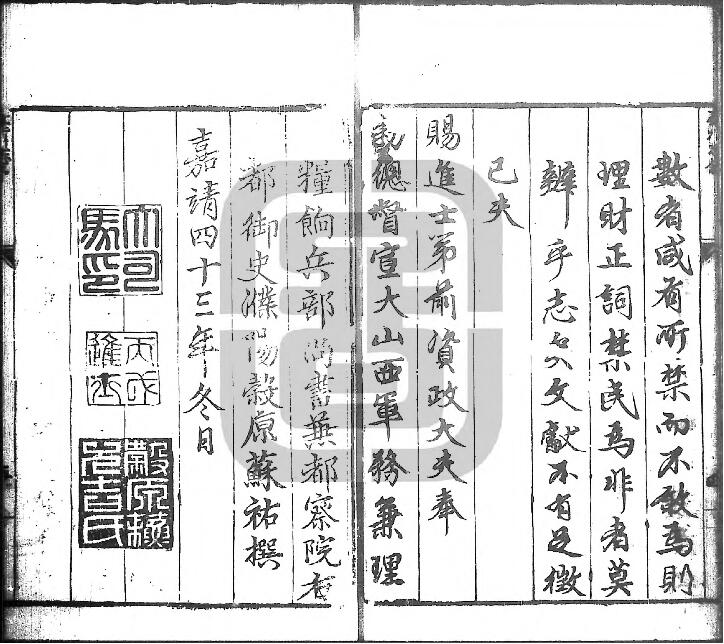 數者咸有所禁而不敢為則
理財正詞禁民為非者莫
辨乎志文獻不有足徵
已夫
賜進士第前資政大夫奉
敕總督宣大山西軍務兼理
糧餉兵部尚書兼都察院右
都御史濮陽穀原蘇祐撰
嘉靖四十三年冬月
大司
馬印
丙戌
進士
穀原蘇
允吉氏